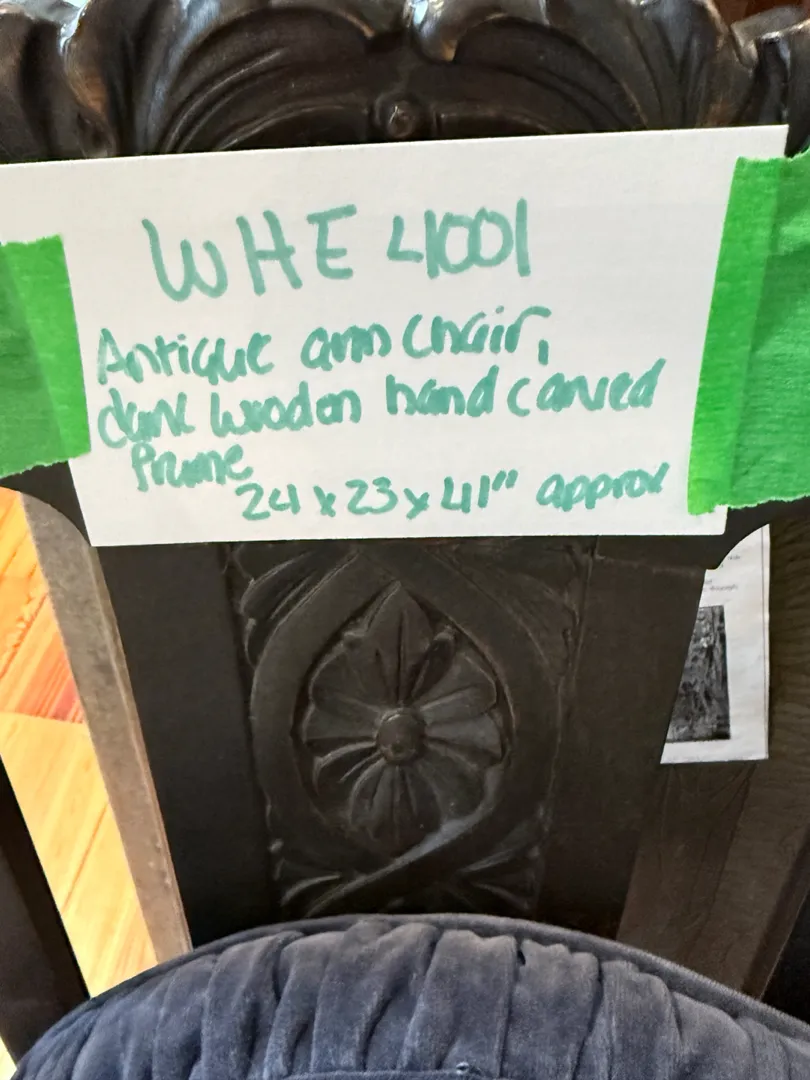 WHE 4001
Antique arm chair,
dark wooden hand carved
Frame
24 x 23 x 41" approx